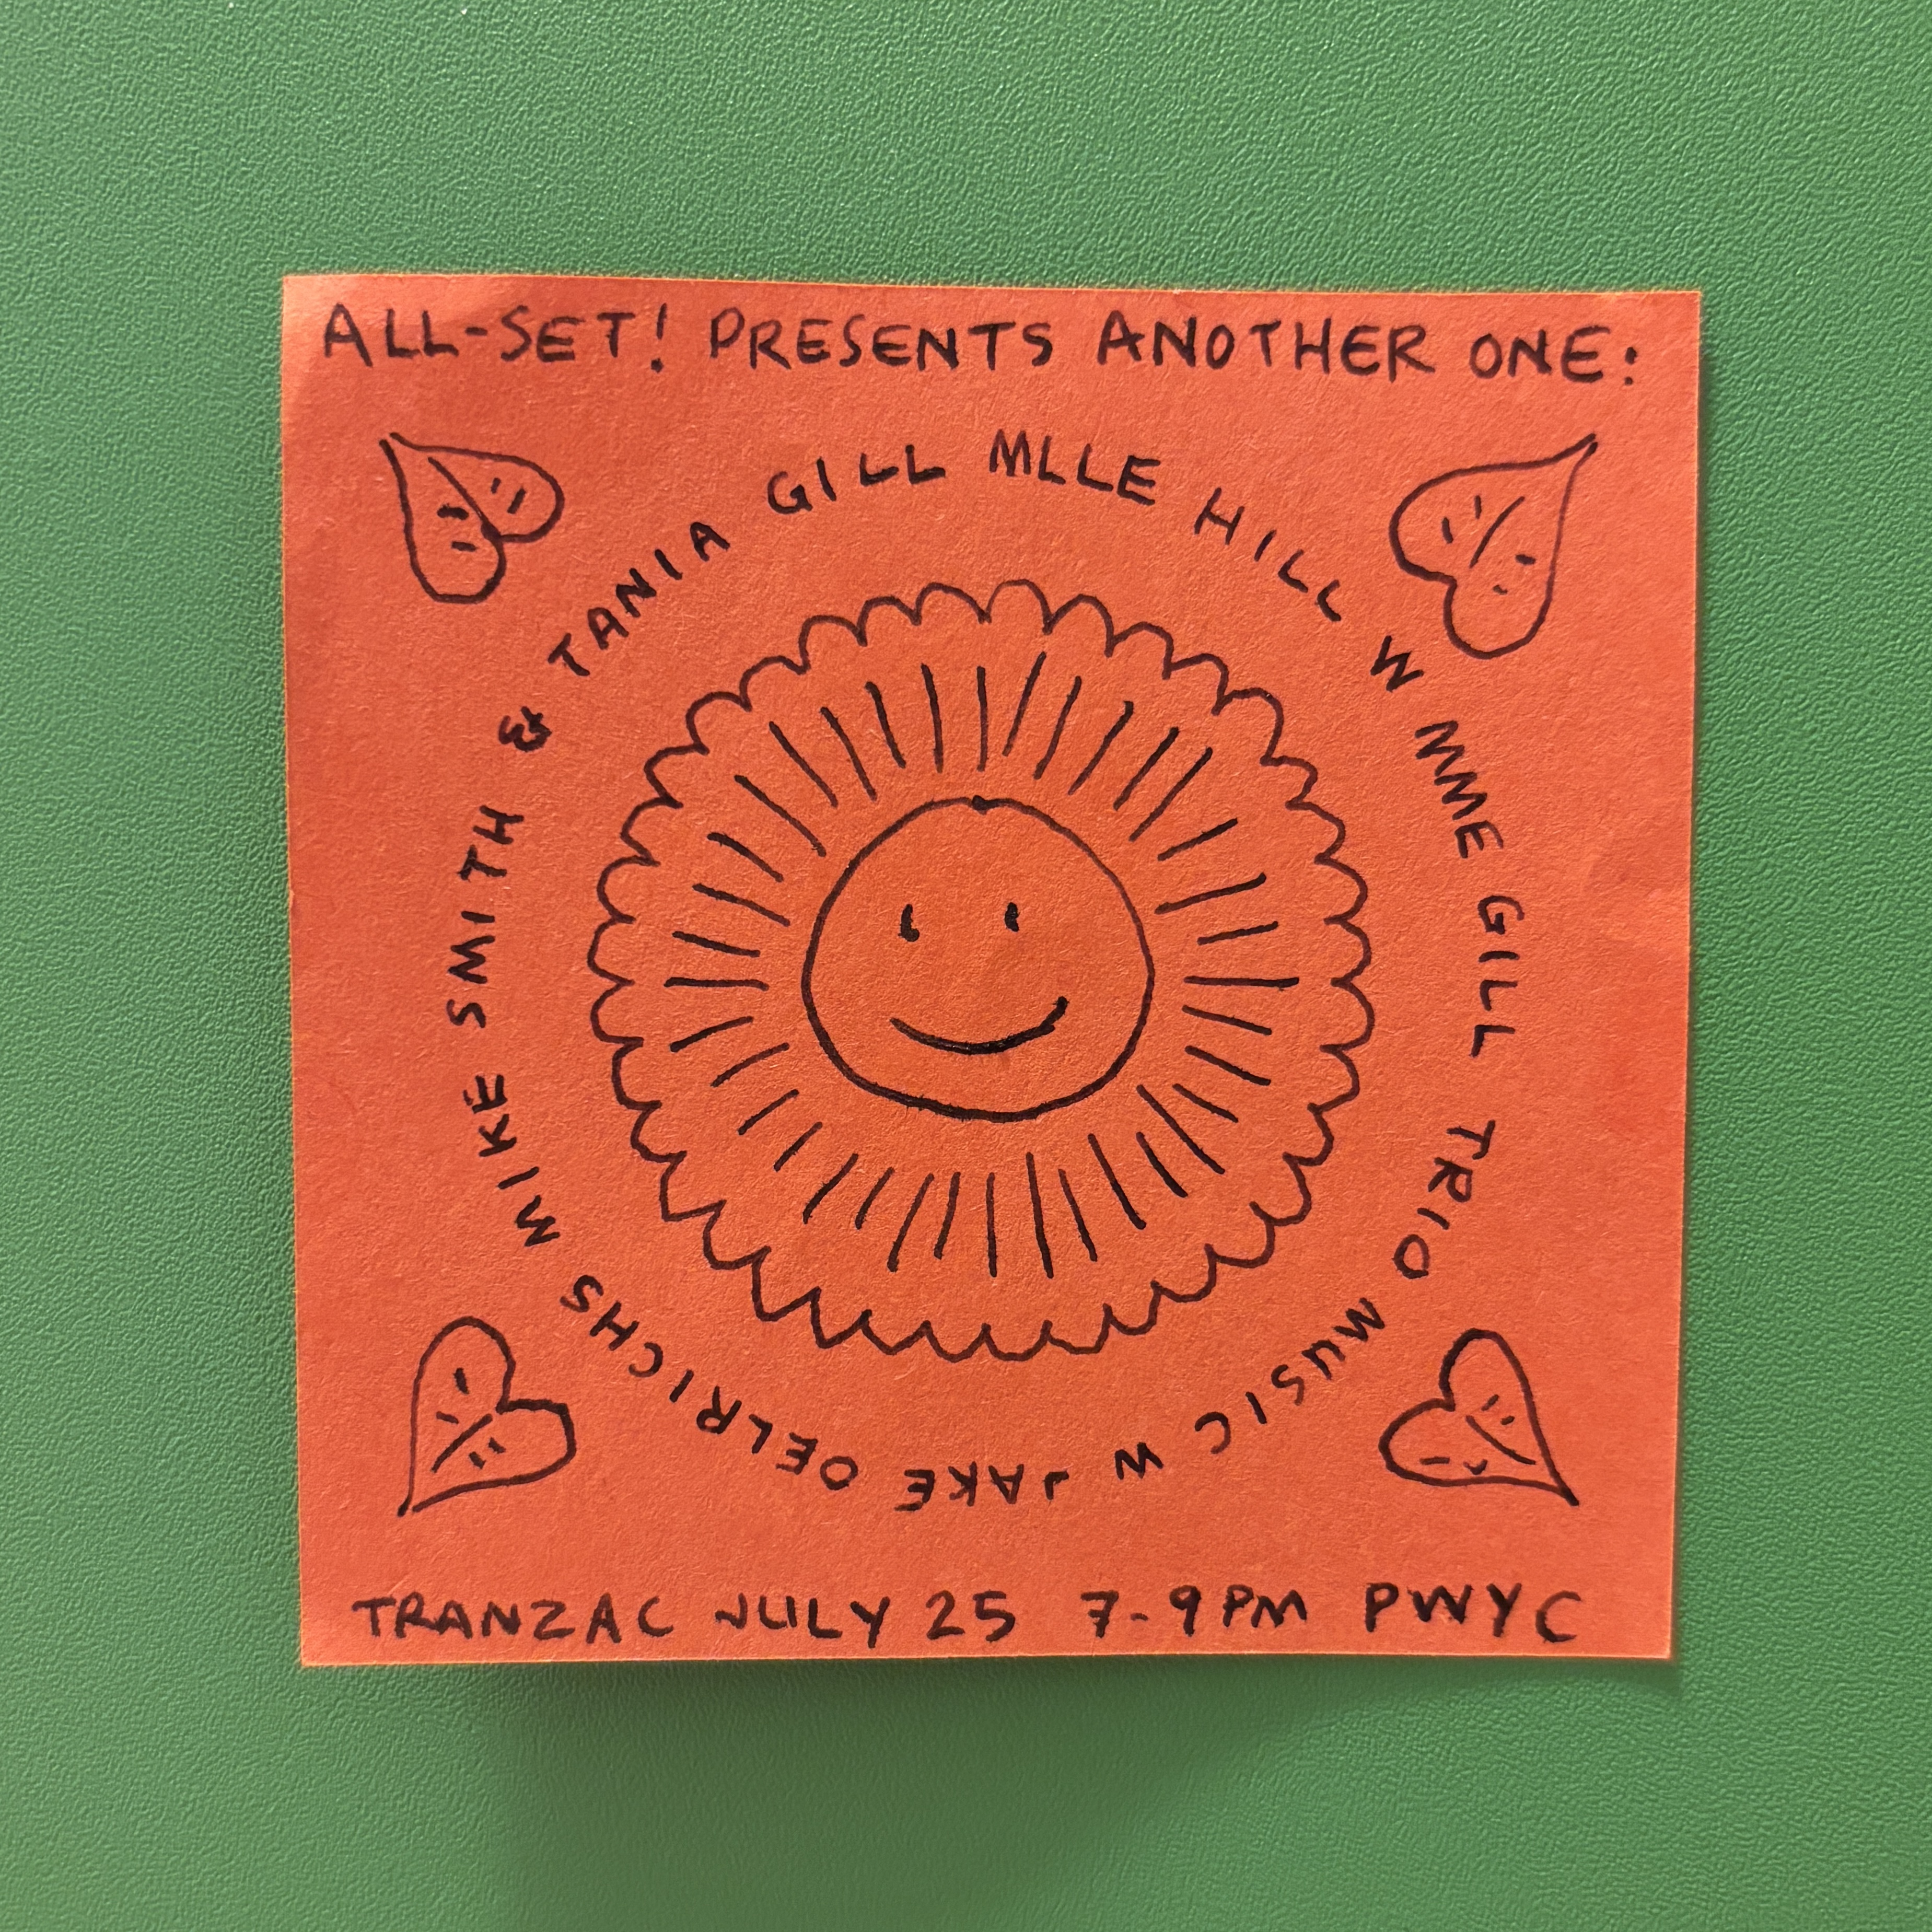 ALL-SET! PRESENTS ANOTHER ONE:
MLLE HILL W MME GILL TRIO MUSIC W JAKE OELRICHS MIKE SMITH & TANIA GILL
TRANZAC JULY 25 7-9PM PWYC